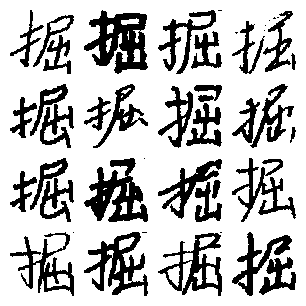 掘掘掘掘
掘掘掘掘
掘掘掘掘
掘掘掘掘